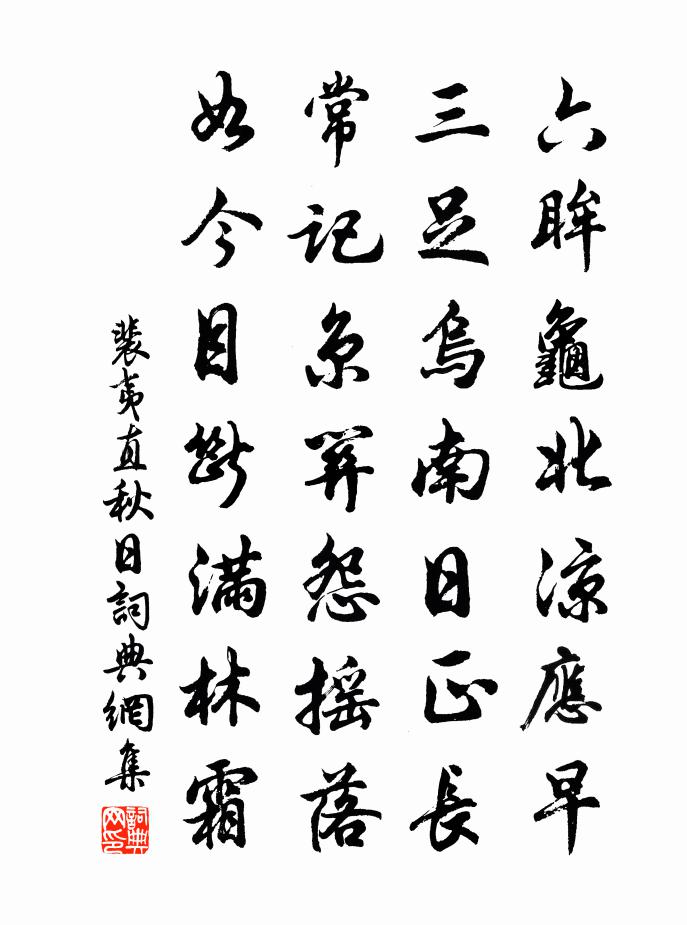 六眸龜北涼應早
三足烏南日正長
常記京關怨搖落
如今目斷滿林霜
裴夷直秋日詞典網集
詞典
网印